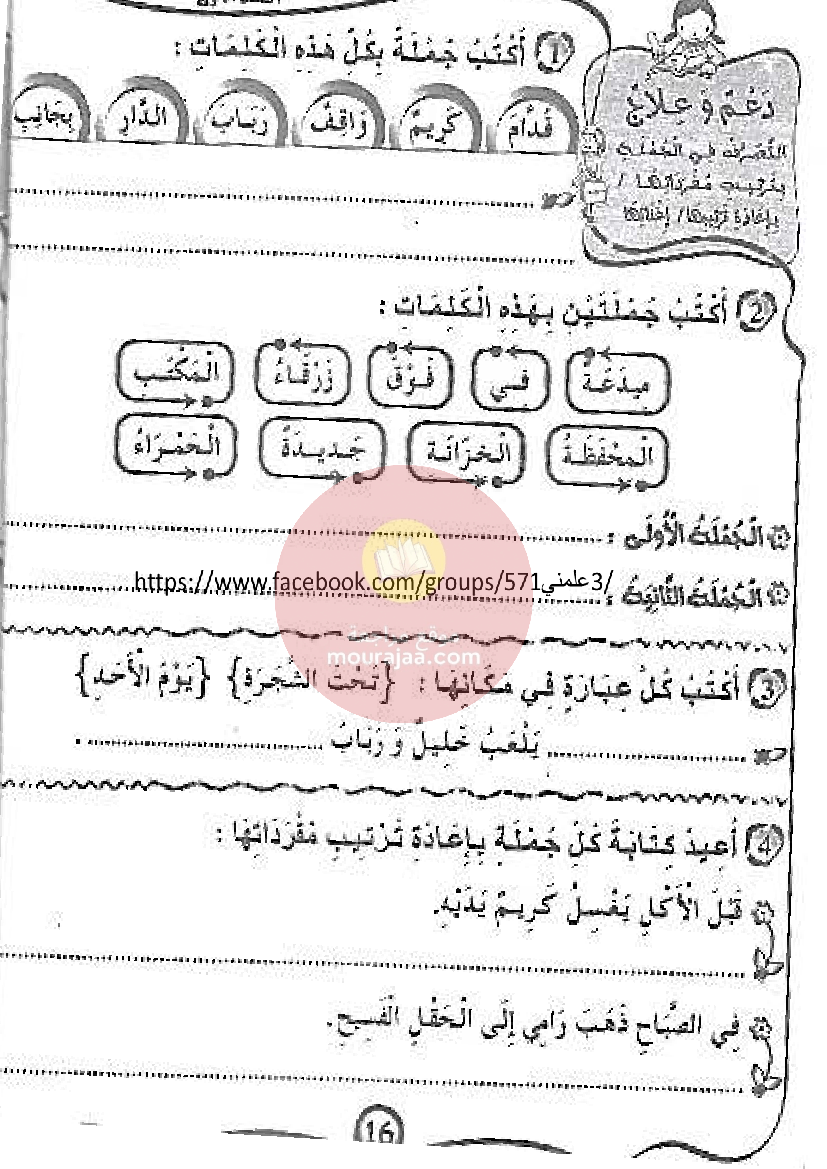 1 أَكْتُبُ جُمْلَةً بِكُلِّ هَذِهِ الْكَلِمَاتِ :
دَعْمٌ وَ عِلاَجٌ
التَّصَرُّفُ فِي الْجُمْلَةِ
بِتَرْتِيبِ مُفْرَدَاتِهَا /
بِإِعَادَةِ تَرْتِيبِهَا /
قُدَّامَ كَرِيمٌ وَاقِفٌ رَبَابَ الدَّارِ بِجَانِبِ
2 أَكْتُبُ جُمْلَتَيْنِ بِهَذِهِ الْكَلِمَاتِ :
مِيدَعَةٌ فِي فَوْقَ زَرْقَاءُ الْمَكْتَبِ
الْمِحْفَظَةُ الْخِزَانَةِ جَدِيدَةٌ الْحَمْرَاءُ
الْجُمْلَةُ الْأُولَى :
الْجُمْلَةُ الثَّانِيَةُ :
https://www.facebook.com/groups/571علمني3/
موقع مراجعة
mourajaa.com
3 أَكْتُبُ كُلَّ عِبَارَةٍ فِي مَكَانِهَا : {تَحْتَ الشَّجَرَةِ} {يَوْمَ الْأَحَدِ}
يَلْعَبُ خَلِيلٌ وَ رَبَابُ .
4 أُعِيدُ كِتَابَةَ كُلِّ جُمْلَةٍ بِإِعَادَةِ تَرْتِيبِ مُفْرَدَاتِهَا :
قَبْلَ الْأَكْلِ يَغْسِلُ كَرِيمٌ يَدَيْهِ.
فِي الصَّبَاحِ ذَهَبَ رَامِي إِلَى الْحَقْلِ الْفَسِيحِ.
16